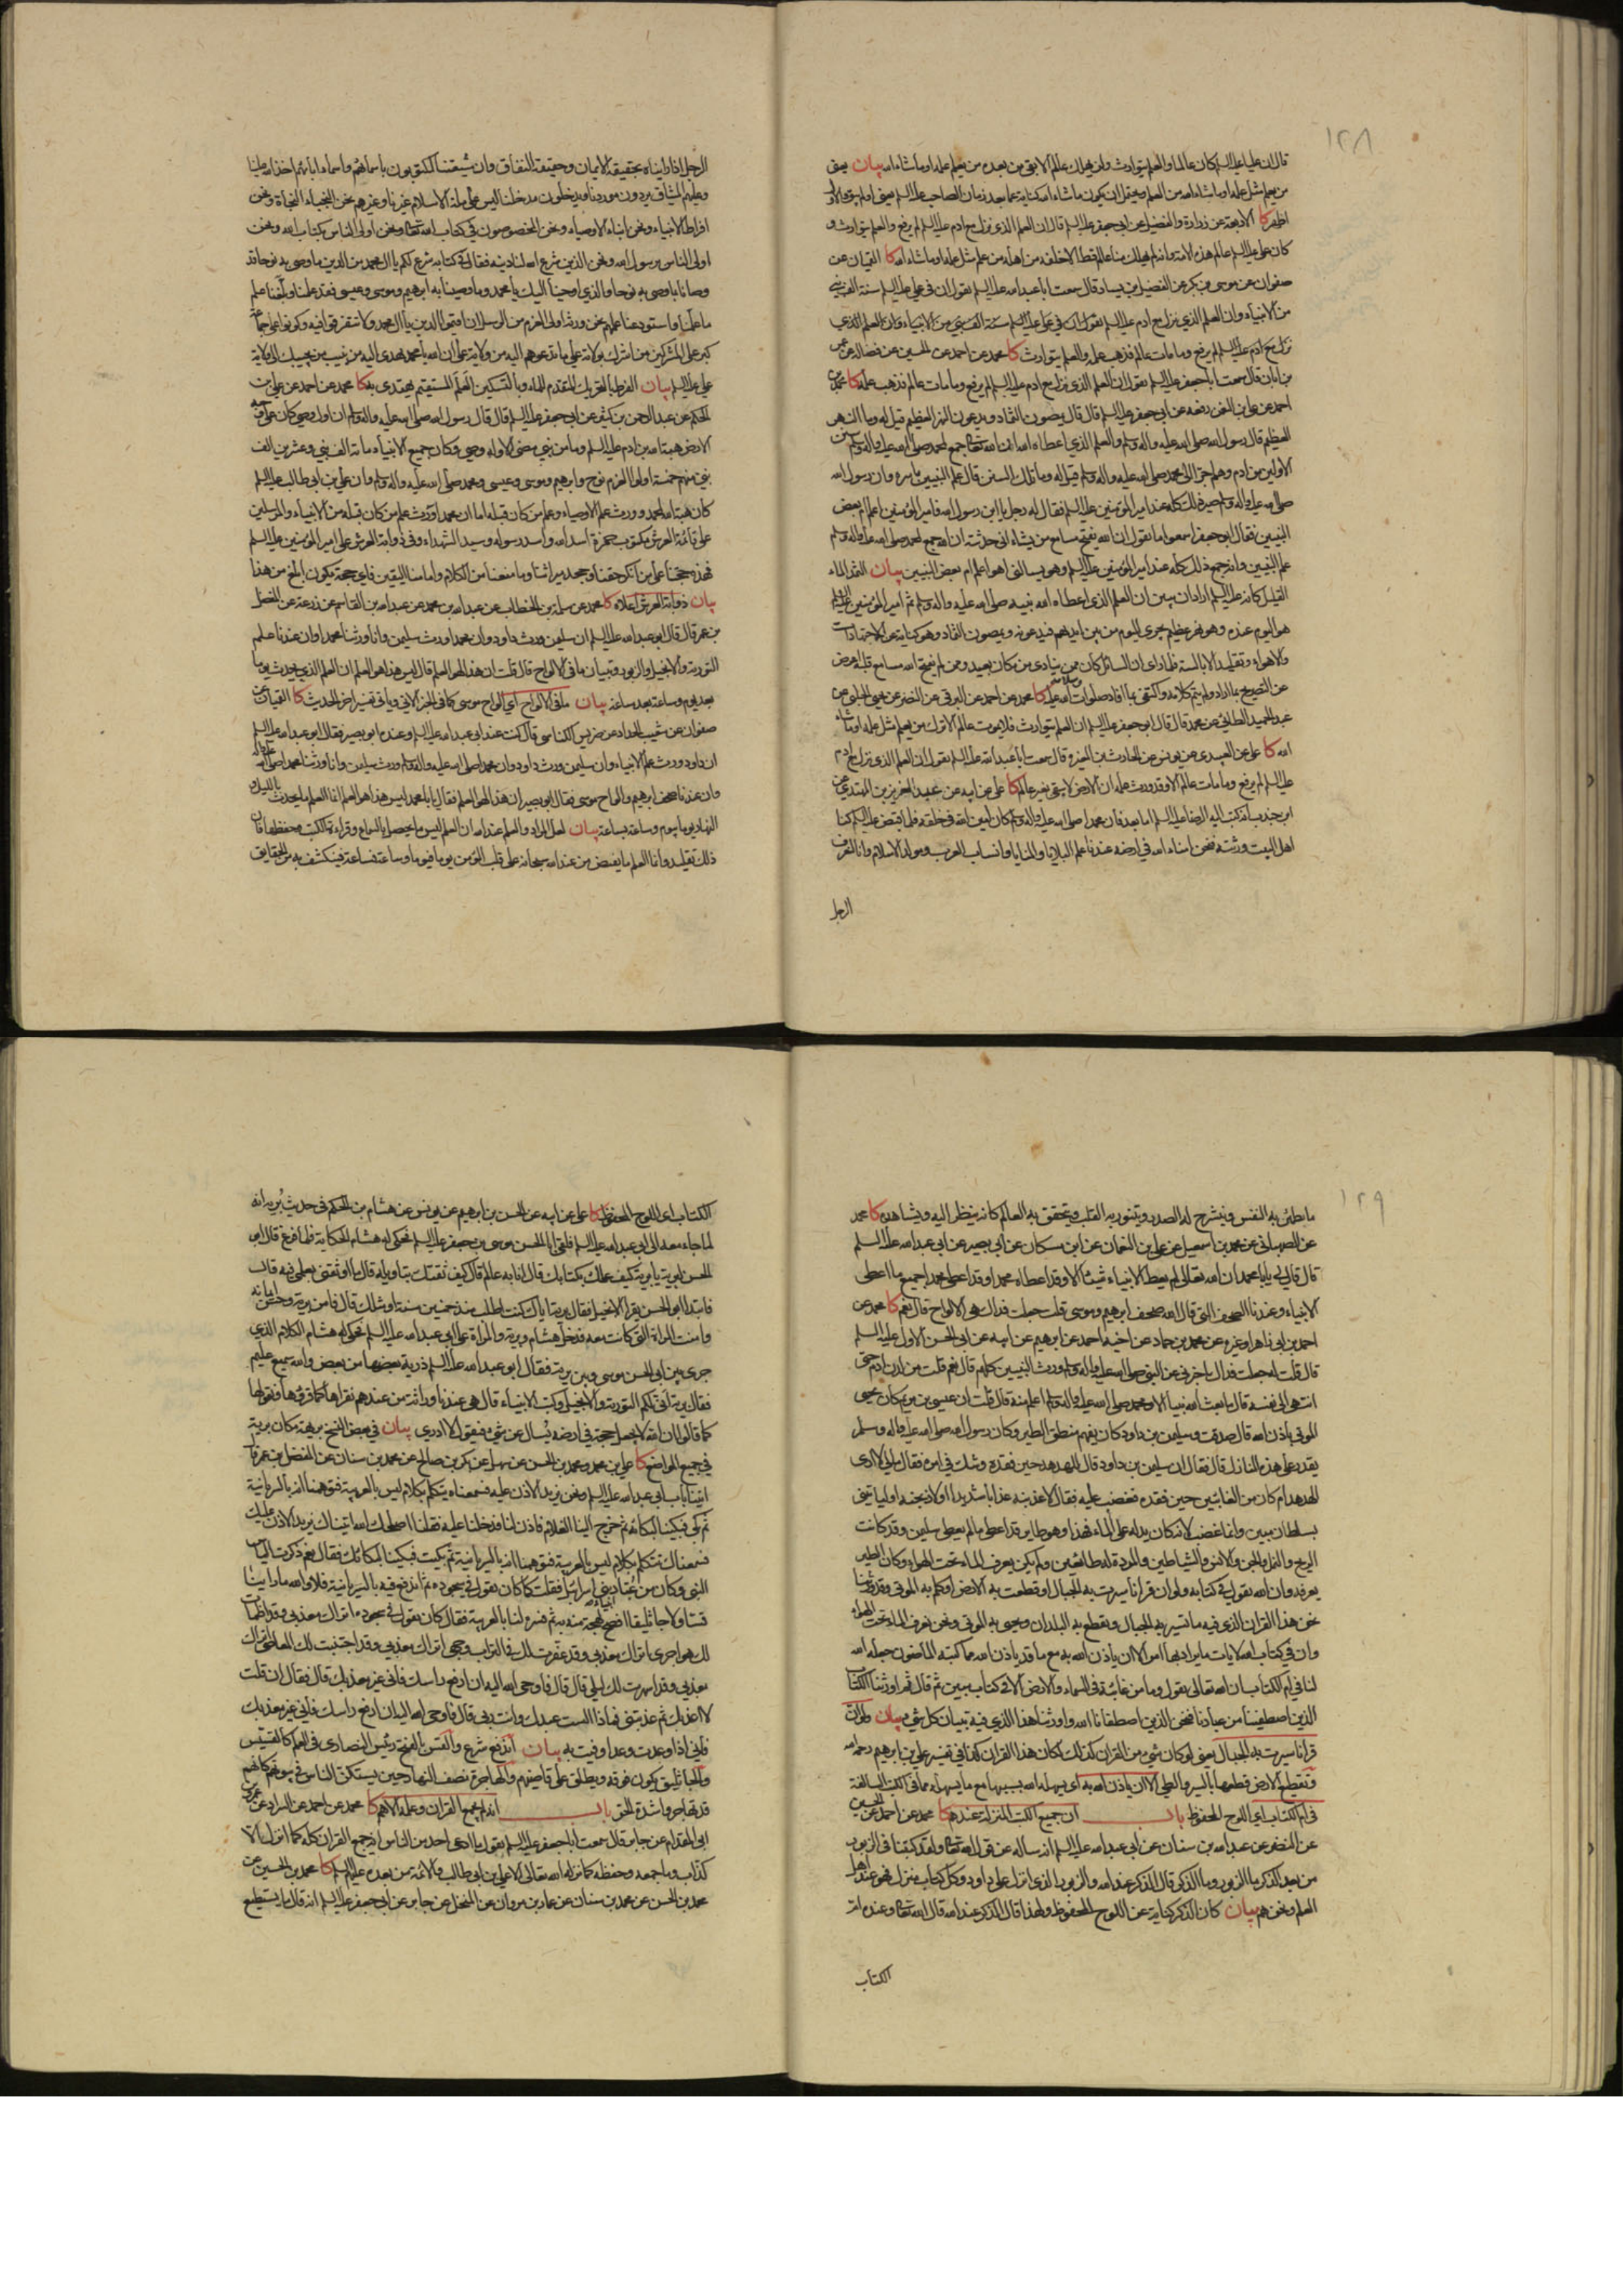 ١٢٨
قال ان عليا عليه السلم كان عالما والعلم يتوارث ولن يهلك عالم الا بقي من بعده من يعلم علمه او ما شاء الله بيان يعنى
من يعلم مثل علمه او ما شاء الله من العلم
اظهر كا الاربعة عن زرارة والفضيل عن ابي جعفر عليه السلم قال ان العلم الذي نزل مع ادم عليه السلم لم يرفع والعلم يتوارث و
كان على عليه السلم عالم هذه الامة وانه لم يهلك منا عالم قط الا خلفه من اهله من علم مثل علمه او ما شاء الله كا القميان عن
صفوان عن موسى بن بكر عن الفضيل بن يسار قال سمعت ابا عبد الله عليه السلم يقول ان في علي عليه السلم سنة الف نبي
من الانبياء وان العلم الذي نزل مع ادم عليه السلم
نزل مع ادم عليه السلم لم يرفع وما مات عالم فذهب علمه والعلم يتوارث كا محمد عن احمد عن الحسين عن فضالة عن عمر
بن ابان قال سمعت ابا جعفر عليه السلم يقول ان العلم الذي نزل مع ادم عليه السلم لم يرفع وما مات عالم فذهب علمه كا محمد عن
احمد عن علي بن النعمن رفعه عن ابي جعفر عليه السلم قال قال يمصون الثماد ويدعون النهر العظيم قيل له وما النهر
العظيم قال رسول الله صلى الله عليه واله وسلم والعلم الذي اعطاه الله ان الله تعالى جمع لمحمد صلى الله عليه واله وسلم سنن
الاولين من ادم وهلم جرا الى محمد صلى الله عليه واله وسلم قيل له وما تلك السنن قال علم النبيين باسره وان رسول الله
صلى الله عليه واله وسلم صير ذلك كله عند امير المؤمنين عليه السلم فقال له رجل يا ابن رسول الله فامير المؤمنين اعلم ام بعض
النبيين فقال ابو جعفر اسمعوا ما يقول ان الله يفتح مسامع من يشاء انى حدثته ان الله جمع لمحمد صلى الله عليه واله وسلم
علم النبيين وانه جمع ذلك كله عند امير المؤمنين عليه السلم وهو يسالنى اهو اعلم ام بعض النبيين بيان الثمد الماء
القليل كانه عليه السلم اراد ان يبين ان العلم الذى اعطاه الله نبيه صلى الله عليه واله وسلم ثم امير المؤمنين عليه السلم
هو اليوم عنده وهو نهر عظيم يجرى اليوم من بين ايديهم فيدعونه ويمصون الثماد وهو كناية عن الاجتهادات
والاهواء وتقليد الابالسة فلما راى ان السائل كان ممن ينادى من مكان بعيد وممن لم يفتح الله مسامع قلبه اعرض
عن التصريح بما اراد ولم يتم كلامه واكتفى بما افاد صلوات الله وسلامه عليه كا محمد عن احمد عن البرقى عن النضر عن يحيى الحلبي عن
عبد الحميد الطائي عن محمد قال قال ابو جعفر عليه السلم ان العلم يتوارث فلا يموت عالم الا ترك من يعلم مثل علمه او ما شاء
الله كا على عن العبيدى عن يونس عن الحارث بن المغيرة قال سمعت ابا عبد الله عليه السلم يقول ان العلم الذى نزل مع ادم
عليه السلم لم يرفع وما مات عالم الا وقد ورث علمه ان الارض لا تبقى بغير عالم كا على عن ابيه عن عبد العزيز بن المهتدي عن
ابن جندب انه كتب اليه الرضا عليه السلم اما بعد فان محمدا صلى الله عليه واله وسلم كان امين الله فى خلقه فلما قبض عليه السلم كنا
اهل البيت ورثته فنحن امناء الله في ارضه عندنا علم البلايا والمنايا وانساب العرب ومولد الاسلام وانا لنعرف
الرجل
الرجل اذا رايناه بحقيقة الايمان وحقيقة النفاق وان شيعتنا لمكتوبون باسمائهم واسماء ابائهم اخذ الله علينا
وعليهم الميثاق يردون موردنا ويدخلون مدخلنا ليس على ملة الاسلام غيرنا وغيرهم نحن النجباء النجاة ونحن
افراط الانبياء ونحن ابناء الاوصياء ونحن المخصوصون في كتاب الله تعالى ونحن اولى الناس بكتاب الله ونحن
اولى الناس برسول الله ونحن الذين شرع الله لنا دينه فقال في كتابه شرع لكم يا ال محمد من الدين ما وصى به نوحا قد
وصانا بما وصى به نوحا والذي اوحينا اليك يا محمد وما وصينا به ابرهيم وموسى وعيسى فقد علمنا وبلغنا علم
ما علمنا واستودعنا علمهم نحن ورثة اولى العزم من الرسل ان اقيموا الدين يا ال محمد ولا تتفرقوا فيه وكونوا على جماعة
كبر على المشركين من اشرك بولاية علي ما تدعوهم اليه من ولاية علي ان الله يا محمد يهدى اليه من ينيب من يجيبك الى ولاية
علي عليه السلم بيان الفرط بالتحريك المتقدم للماء وبالتسكين العلم المستقيم يهتدى به كا محمد عن احمد عن علي بن
الحكم عن عبد الرحمن بن كثير عن ابي جعفر عليه السلم قال قال رسول الله صلى الله عليه واله وسلم ان اول وصي كان على وجه
الارض هبة الله بن ادم عليه السلم وما من نبي مضى الا وله وصي وكان جميع الانبياء مائة الف نبي وعشرين الف
نبي منهم خمسة اولوا العزم نوح وابرهيم وموسى وعيسى ومحمد صلى الله عليه واله وسلم وان علي بن ابي طالب عليه السلم
كان هبة الله لمحمد وورث علم الاوصياء وعلم من كان قبله اما ان محمدا ورث علم من كان قبله من الانبياء والمرسلين
على قائمة العرش مكتوب حمزة اسد الله واسد رسوله وسيد الشهداء وفي ذوابة العرش علي امير المؤمنين عليه السلم
فهذه حجتنا على من انكر حقنا وجحد ميراثنا وما منعنا من الكلام وامامنا اليقين فاي حجة يكون ابلغ من هذا
بيان ذوابة العرش اعلاه كا محمد عن سلمة بن الخطاب عن عبد الله بن محمد عن عبد الله بن القاسم عن زرعة عن المفضل
بن عمر قال قال ابو عبد الله عليه السلم ان سليمن ورث داود وان محمدا ورث سليمن وانا ورثنا محمدا وان عندنا علم
التورية والانجيل والزبور وتبيان ما في الالواح قال قلت ان هذا لهو العلم قال ليس هذا هو العلم ان العلم الذي يحدث يوما
بعد يوم وساعة بعد ساعة بيان ما في الالواح اي الواح موسى كما في الخبر الاتي وياتي تفسير اخر الحديث كا القميان عن
صفوان عن شعيب الحداد عن ضريس الكناسى قال كنت عند ابي عبد الله عليه السلم وعنده ابو بصير فقال ابو عبد الله عليه السلم
ان داود ورث علم الانبياء وان سليمن ورث داود وان محمدا صلى الله عليه واله وسلم ورث سليمن وانا ورثنا محمدا صلى الله عليه واله
وان عندنا صحف ابرهيم والواح موسى فقال ابو بصير ان هذا لهو العلم فقال يا ابا محمد ليس هذا هو العلم انما العلم ما يحدث بالليل و
النهار يوما بيوم وساعة بساعة بيان لعل المراد والعلم عند الله ان العلم ليس ما يحصل بالسماع وقراءة الكتب وحفظها فان
ذلك تقليد وانما العلم ما يفيض من عند الله سبحانه على قلب المؤمن يوما فيوما وساعة فساعة فينكشف به من الحقايق
١٢٩
ما يطمئن به النفس وينشرح له الصدر ويتنور به القلب ويتحقق به العالم كانه ينظر اليه ويشاهده كا محمد
عن الصهباني عن محمد بن اسمعيل عن علي بن النعمان عن ابن مسكان عن ابي بصير عن ابي عبد الله عليه السلم
قال قال لي يا با محمد ان الله تعالى لم يعط الانبياء شيئا الا وقد اعطاه محمدا وقد اعطى محمدا جميع ما اعطى
الانبياء وعندنا الصحف التي قال الله صحف ابرهيم وموسى قلت جعلت فداك هى الالواح قال نعم كا محمد عن
احمد بن ابي زاهر او غيره عن محمد بن حماد عن اخيه احمد عن ابرهيم عن ابيه عن ابي الحسن الاول عليه السلم
قال قلت له جعلت فداك اخبرني عن النبي صلى الله عليه واله وسلم ورث النبيين كلهم قال نعم قلت من لدن ادم حتى
انتهى الى نفسه قال ما بعث الله نبيا الا ومحمد صلى الله عليه واله وسلم اعلم منه قال قلت ان عيسى بن مريم كان يحيى
الموتى باذن الله قال صدقت وسليمن بن داود كان يفهم منطق الطير وكان رسول الله صلى الله عليه واله وسلم
يقدر على هذه المنازل قال فقال ان سليمن بن داود قال للهدهد حين فقده وشك في امره فقال مالي لا ارى
الهدهد ام كان من الغائبين حين فقده فغضب عليه فقال لاعذبنه عذابا شديدا او لاذبحنه او لياتيني
بسلطان مبين وانما غضب لانه كان يدله على الماء فهذا وهو طاير قد اعطى ما لم يعط سليمن وقد كانت
الريح والنمل والجن والانس والشياطين والمردة له طائعين ولم يكن يعرف الماء تحت الهواء وكان الطير
يعرفه وان الله يقول في كتابه ولو ان قرانا سيرت به الجبال او قطعت به الارض او كلم به الموتى وقد ورثنا
نحن هذا القران الذى فيه ما تسير به الجبال ويقطع به البلدان ويحيى به الموتى ونحن نعرف الماء تحت الهواء
وان في كتاب الله لايات ما يراد بها امر الا ان ياذن الله به مع ما قد ياذن الله مما كتبه الماضون جعله الله
لنا في ام الكتاب ان الله تعالى يقول وما من غائبة في السماء والارض الا في كتاب مبين ثم قال ثم اورثنا الكتاب
الذين اصطفينا من عبادنا فنحن الذين اصطفانا الله واورثنا هذا الذي فيه تبيان كل شيء بيان ولو ان
قرانا سيرت به الجبال يعنى لو كان شيء من القران كذلك لكان هذا القران كذا في تفسير علي بن ابرهيم رحمه الله
وتقطيع الارض قطعها بالسير والطي الا ان ياذن الله به اى يسهله الله بسببها مع ما يسهله مما في الكتب السالفة
في ام الكتاب اي اللوح المحفوظ باب ان جميع الكتب المنزلة عندهم كا محمد عن احمد عن الحسين
عن النضر عن عبد الله بن سنان عن ابي عبد الله عليه السلم انه ساله عن قول الله تعالى ولقد كتبنا في الزبور
من بعد الذكر ما الزبور وما الذكر قال الذكر عند الله والزبور الذى انزل على داود وكل كتاب منزل فهو عند اهل
العلم ونحن هم بيان كان الذكر كناية عن اللوح المحفوظ ولهذا قال الذكر عند الله قال الله تعالى وعنده ام
الكتاب
الكتاب اى اللوح المحفوظ كا على عن ابيه عن الحسن بن ابرهيم عن يونس عن هشام بن الحكم فى حديث بريه انه
لما جاء معه الى ابي عبد الله عليه السلم فلقى ابا الحسن موسى بن جعفر عليه السلم فحكى له هشام الحكاية فلما فرغ قال ابو
الحسن لبرية يا بريه كيف علمك بكتابك قال انا به عالم قال كيف ثقتك بتاويله قال ما اوثقني بعلمي فيه قال
فابتدا ابو الحسن يقرا الانجيل فقال بريه اياك كنت اطلب منذ خمسين سنة او مثلك قال فامن بريه وحسن ايمانه
وامنت المراة التي كانت معه فدخل هشام وبريه والمراة على ابي عبد الله عليه السلم فحكى له هشام الكلام الذي
جرى بين ابى الحسن موسى وبين بريه فقال ابو عبد الله عليه السلم ذرية بعضها من بعض والله سميع عليم
فقال بريه انى لكم التورية والانجيل وكتب الانبياء قال هى عندنا وراثة من عندهم نقراها كما قرؤها ونقولها
كما قالوا ان الله لا يجعل حجة في ارضه يسال عن شيء فيقول لا ادري بيان في بعض النسخ بريهة مكان بريه
في جميع المواضع كا علي بن محمد ومحمد بن الحسن عن سهل عن بكر بن صالح عن محمد بن سنان عن المفضل بن عمر قال
اتينا باب ابي عبد الله عليه السلم ونحن نريد الاذن عليه فسمعناه يتكلم بكلام ليس بالعربية فتوهمنا انه بالسريانية
ثم بكى فبكينا لبكائه ثم خرج الينا الغلام فاذن لنا فدخلنا عليه فقلنا اصلحك الله اتيناك نريد الاذن عليك
فسمعناك تتكلم بكلام ليس بالعربية فتوهمنا انه بالسريانية ثم بكيت فبكينا لبكائك فقال نعم ذكرت الياس
النبي وكان من عباد انبياء بني اسرائيل فقلت كما كان يقول في سجوده ثم اندفع فيه بالسريانية فلا والله ما راينا
قسا ولا جاثليقا افصح لهجة منه به ثم فسره لنا بالعربية فقال كان يقول في سجوده اتراك معذبي وقد اظمات
لك هواجرى اتراك معذبي وقد عفرت لك في التراب وجهى اتراك معذبي وقد اجتنبت لك المعاصي اتراك
معذبي وقد اسهرت لك ليلي قال قال فاوحى الله اليه ان ارفع راسك فاني غير معذبك قال فقال ان قلت
لا اعذبك ثم عذبتني فماذا الست عبدك وانت ربي قال فاوحى الله اليه ان ارفع راسك فاني غير معذبك
فاني اذا وعدت وعدا وفيت به بيان اندفع شرع والقس بالفتح رئيس النصارى في العلم كالقسيس
والجاثليق يكون فوقه ويطلق على قاضيهم والهاجرة نصف النهار حين يستكن الناس في بيوتهم كانهم
قد تهاجروا شدة الحر باب انه لم يجمع القران وعلمه الا هم كا محمد عن احمد عن السراد عن عمرو بن
ابى المقدام عن جابر قال سمعت ابا جعفر عليه السلم يقول ما ادعى احد من الناس انه جمع القران كله كما انزل الا
كذاب وما جمعه وحفظه كما نزله الله تعالى الا علي بن ابي طالب والائمة من بعده عليهم السلم كا محمد بن الحسين عن
محمد بن الحسن عن محمد بن سنان عن عمار بن مروان عن المنخل عن جابر عن ابي جعفر عليه السلم انه قال ما يستطيع